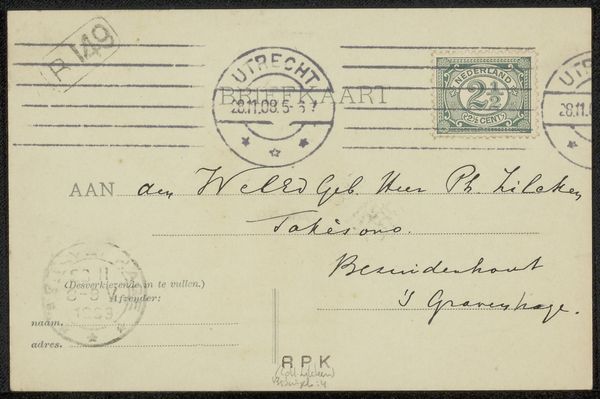 R 149
UTRECHT
28.11.08. 5-6
BRIEFKAART
NEDERLAND
2½
(2½ CENT)
UT
28.11.0
AAN den WelEd Geb Heer Ph. Zilcken
Bezuidenhout
's Gravenhage.
(Desverkiezende in te vullen.)
Afzender:
naam.
adres.
RPK